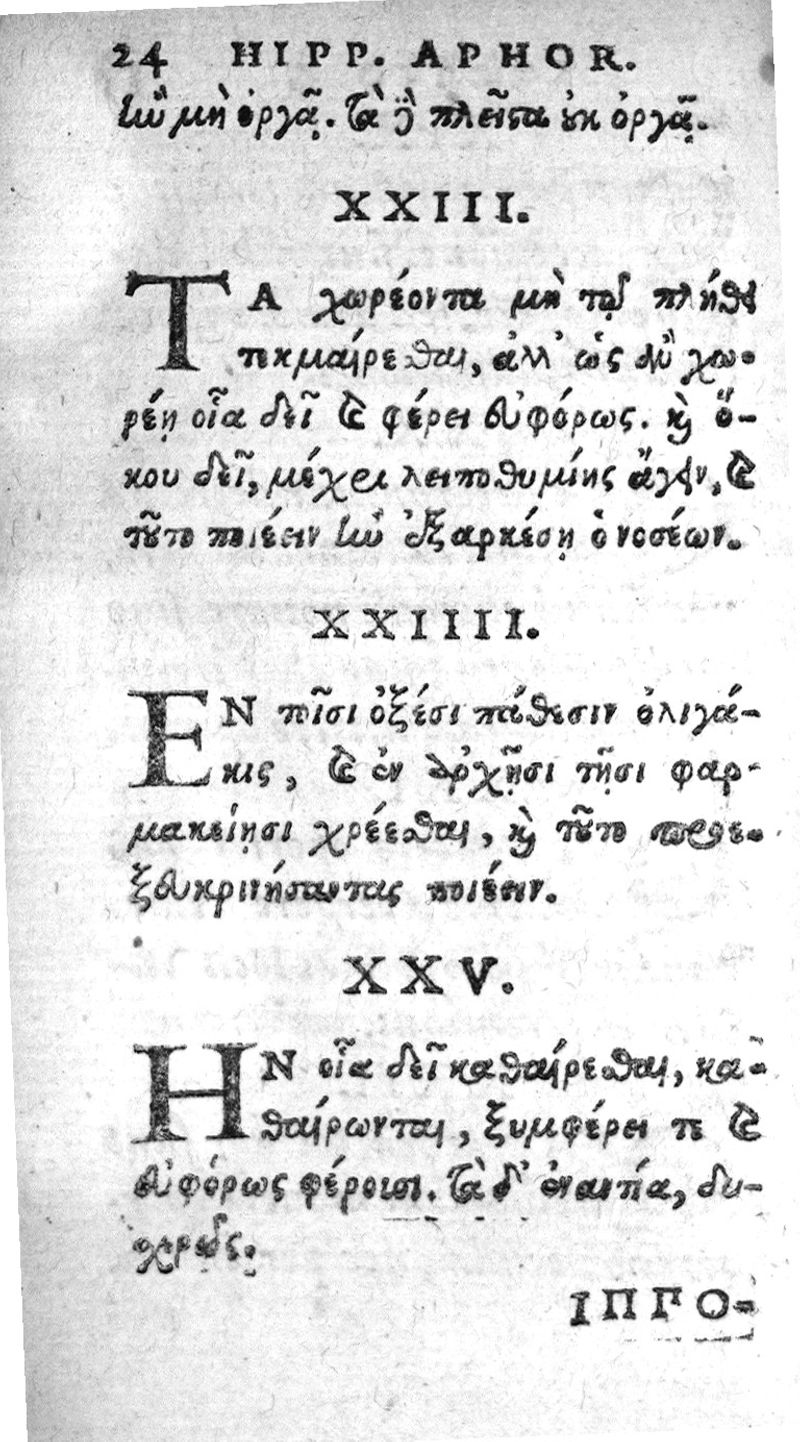 24 HIPP. APHOR.
ἢν μὴ ὀργᾷ. τὰ δὲ πλεῖστα οὐκ ὀργᾷ.
XXIII.
ΤΑ χωρέοντα μὴ τῷ πλήθει
τεκμαίρεσθαι, ἀλλ' ὡς ἂν χω-
ρέῃ οἷα δεῖ καὶ φέρει εὐφόρως. καὶ ὅ-
κου δεῖ, μέχρι λειποθυμίης ἄγειν, καὶ
τοῦτο ποιέειν ἢν ἐξαρκέσῃ ὁ νοσέων.
XXIIII.
ΕΝ τοῖσι ὀξέσι πάθεσιν ὀλιγά-
κις, καὶ ἐν ἀρχῇσι τῇσι φαρ-
μακείῃσι χρέεσθαι, καὶ τοῦτο προε-
ξευκρινήσαντας ποιέειν.
XXV.
ΗΝ οἷα δεῖ καθαίρεσθαι, κα-
θαίρωνται, ξυμφέρει τε καὶ
εὐφόρως φέροισι. τὰ δ' ἐναντία, δυ-
χερῶς.
ΙΠΓΟ-